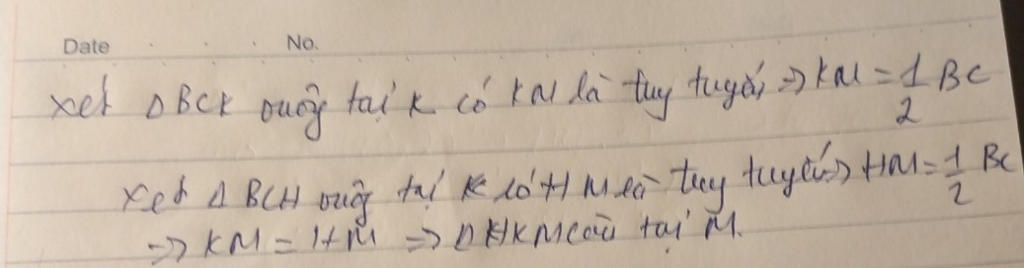 Date No.
Xét Δ BCK vuông tại K có KM là tuy tuyến => KM = 1/2 BC
Xét Δ BCH vuông tại K có HM là tuy tuyến => HM = 1/2 BC
=> KM = HM => Δ HKM cân tại M.